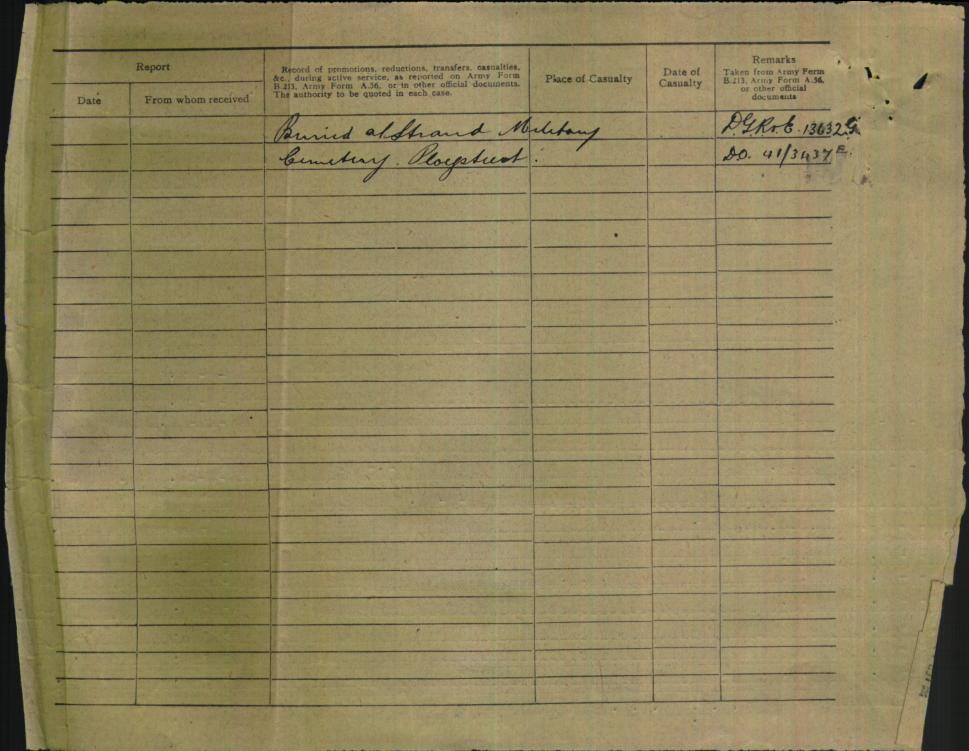 Report
Date
From whom received
Record of promotions, reductions, transfers, casualties,
&c., during active service, as reported on Army Form
B.213, Army Form A.36, or in other official documents.
The authority to be quoted in each case.
Place of Casualty
Date of
Casualty
Remarks
Taken from Army Form
B.213, Army Form A.36,
or other official
documents
Buried at Strand Military
Cemetery. Ploegsteert.
DGR&E. 13632 G
DO. 41/3437 E.